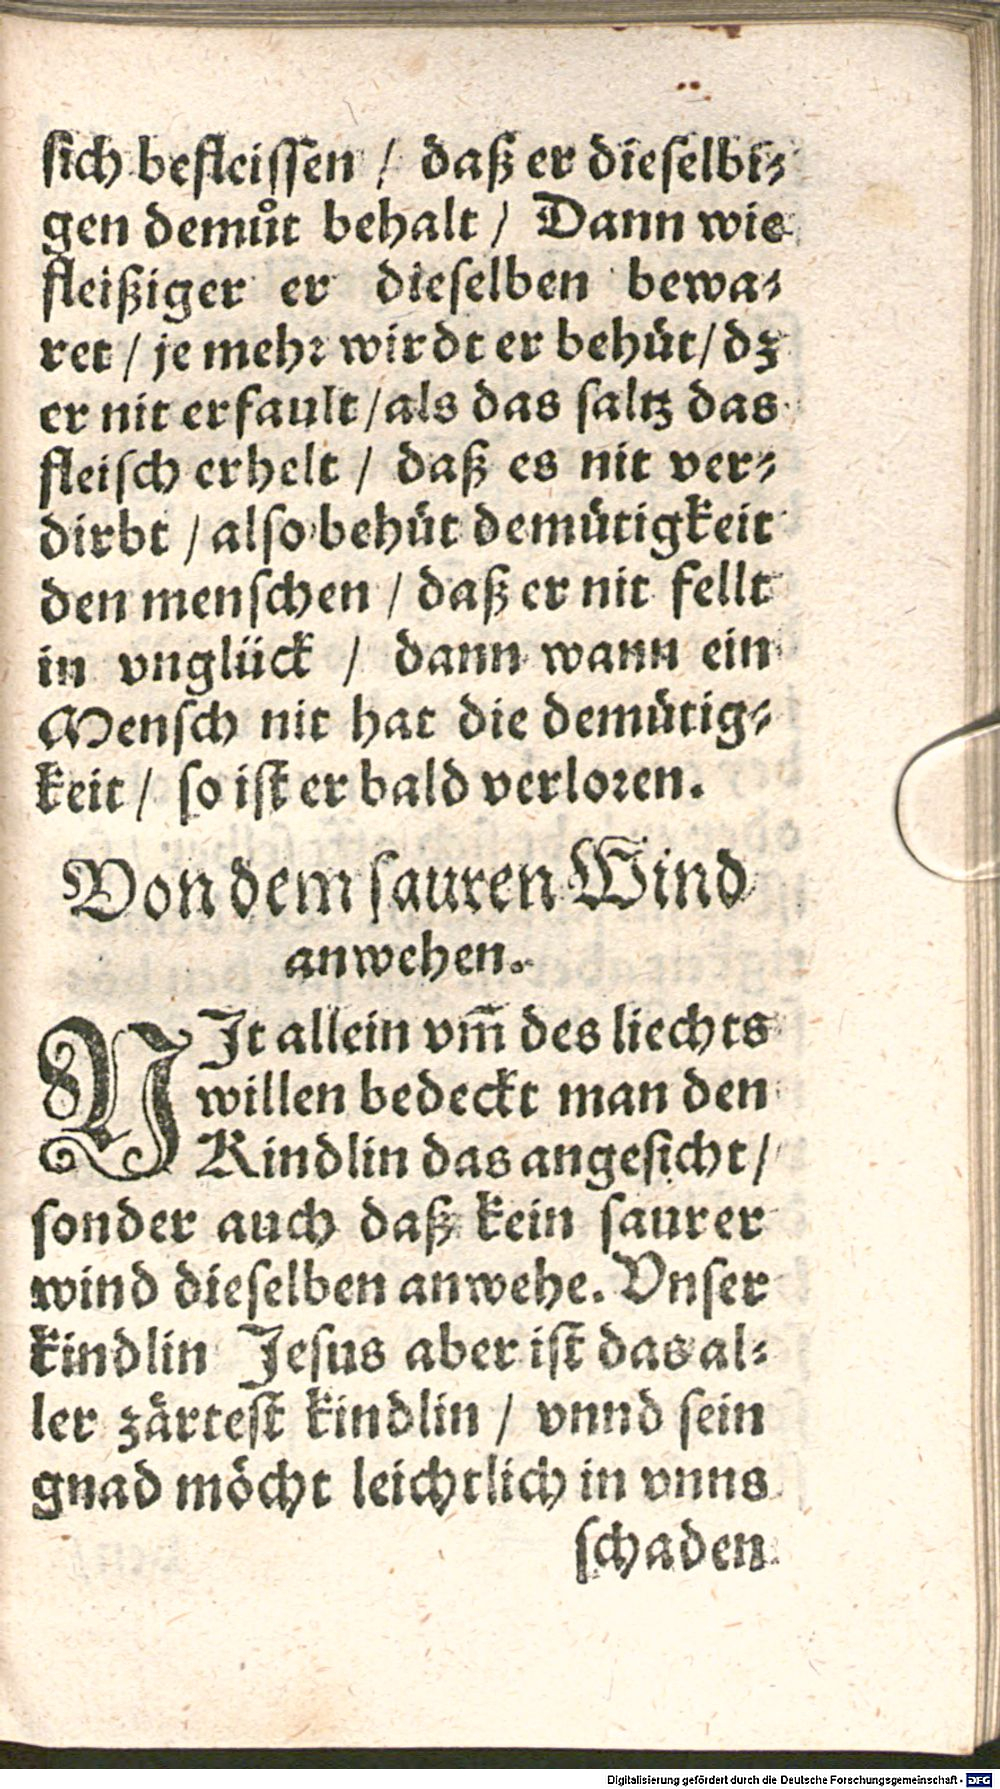 ſich befleiſſen / daß er dieſelbi⸗
gen demůt behalt / Dann wie
fleißiger er dieſelben bewa⸗
ret / je mehꝛ wirdt er behüt / dz
er nit erfault / als das ſaltz das
fleiſch erhelt / daß es nit ver⸗
dirbt / alſo behüt demütigkeit
den menſchen / daß er nit fellt
in vnglück / dann wann ein
Menſch nit hat die demütig⸗
keit / ſo iſt er bald verloꝛen.
Von dem ſauren Wind
anwehen.
NIt allein vm̃ des liechts
willen bedeckt man den
Kindlin das angeſicht /
ſonder auch daß kein ſaurer
wind dieſelben anwehe. Vnſer
kindlin Jeſus aber iſt das al⸗
ler zärteſt kindlin / vnnd ſein
gnad möcht leichtlich in vnns
ſchaden
Digitalisierung gefördert durch die Deutsche Forschungsgemeinschaft - DFG